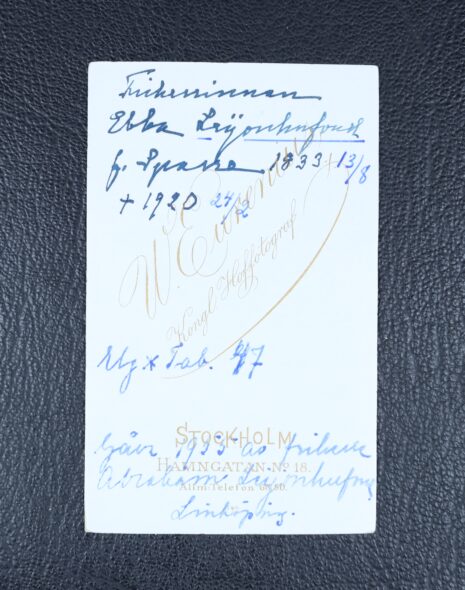 Friherrinnan
Ebba Leijonhufvud
f. Sparre 1833 + 13/8
+ 1920 24/2
W. Eurenius
Kongl. Hoffotograf
Tab. 47
STOCKHOLM
Gåva 1955 av friherre
HAMNGATAN No 18.
Abraham Leijonhufvud
Allm. Telefon
Linköping.